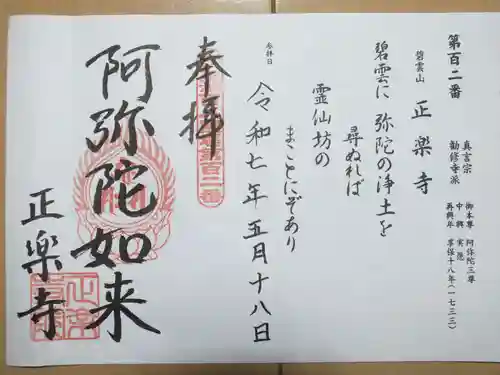 第百二番
真言宗
勧修寺派
御本尊 阿弥陀三尊
中興 実恵
再興年 享保十八年(一七三三)
碧雲山 正楽寺
碧雲に 弥陀の浄土を
尋ぬれば
霊仙坊の
まことにぞあり
参拝日
令和七年五月十八日
奉拝
百二番
阿弥陀如来
正楽寺